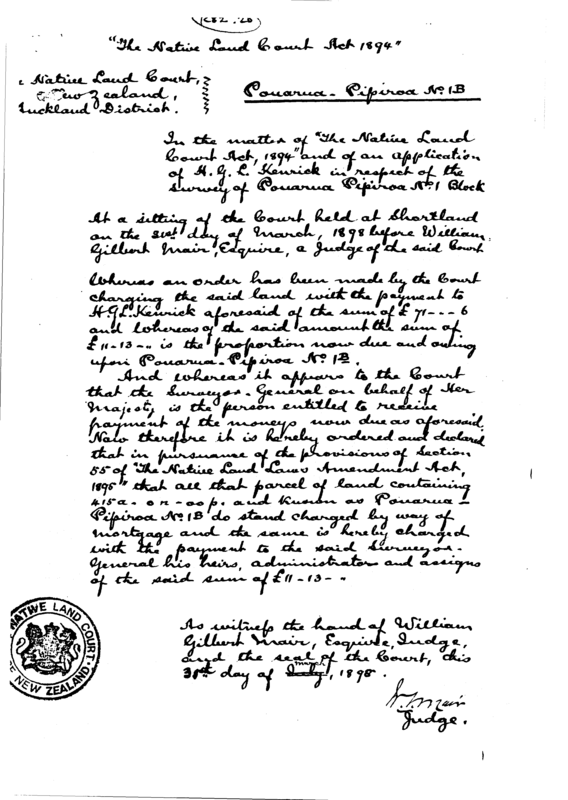 "The Native Land Court Act 1894"
Native Land Court,
New Zealand,
Auckland District.
Pouarua - Pipiroa No. 1B
In the matter of "The Native Land
Court Act, 1894" and of an application
of H. G. L. Kenrick in respect of the
survey of Pouarua Pipiroa No. 1 Block
At a sitting of the Court held at Shortland
on the 31st day of March, 1898 before William
Gilbert Mair, Esquire, a Judge of the said Court
Whereas an order has been made by the Court
charging the said land with the payment to
H.G.L. Kenrick aforesaid of the sum of £71 - - - 6
and Whereas of the said amount the sum of
£11-13-" is the proportion now due and owing
upon Pouarua - Pipiroa No. 1B.
And whereas it appears to the Court
that the Surveyor - General on behalf of Her
Majesty is the person entitled to receive
payment of the moneys now due as aforesaid.
Now therefore it is hereby ordered and declared
that in pursuance of the provisions of Section
55 of "The Native Land Laws Amendment Act,
1895" that all that parcel of land containing
415a - 0r - 00p. and known as Pouarua -
Pipiroa No. 1B do stand charged by way of
mortgage and the same is hereby charged
with the payment to the said Surveyor -
General his heirs, administrator and assigns
of the said sum of £11-13-"
As witness the hand of William
Gilbert Mair, Esquire, Judge,
and the seal of the Court, this
31st day of March, 1898.
W.G. Mair
Judge.
NATIVE LAND COURT
NEW ZEALAND